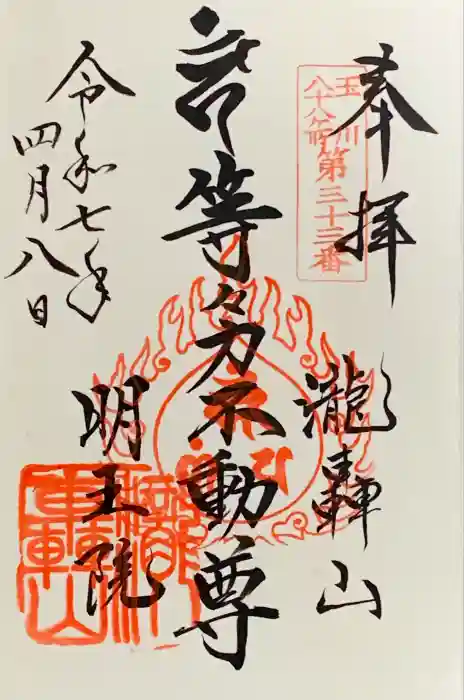 奉拝
玉川
八十八ヶ所
第三十三番
瀧轟山
等々力不動尊
明王院
令和七年
四月八日